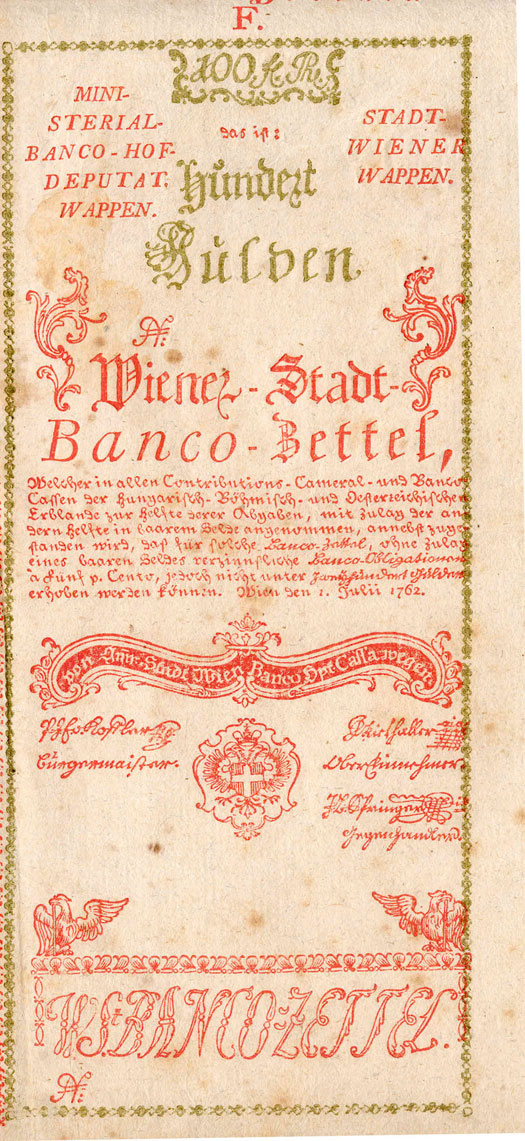 F.
100 fl. Rh.
das ist:
MINI-
STERIAL-
BANCO-HOF-
DEPUTAT.
WAPPEN.
STADT-
WIENER
WAPPEN.
Hundert
Gulden
N:
Wiener-Stadt-
Banco-Zettel,
Welcher in allen Contributions-Cameral- und Banco
Cassen der Hungarisch-Böhmisch- und Oesterreichischen
Erblande zur Helfte derer Abgaben, mit Zulag der an
dern Helfte in baarem Gelde angenommen, annebst zuge
standen wird, daß für solche Banco-Zettel, ohne Zulag
eines baaren Geldes verzinsliche Banco-Obligationen
a fünf p. Cento, jedoch nicht unter zweyhundert Gulden
erhoben werden können. Wien den 1. Julii 1762.
von Gmr. Stadt Wien Banco Hpt. Cassa wegen
burgermaister.
Obereinnehmer
Gegenhandler
W. St. BANCO-ZETTEL.
N: